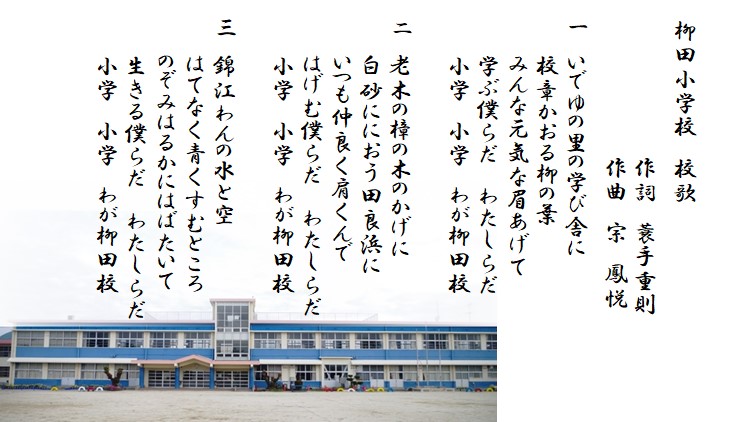 柳田小学校　校歌
作詞　蓑手重則
作曲　宗　鳳悦
一　いでゆの里の学び舎に
校章かおる柳の葉
みんな元気な眉あげて
学ぶ僕らだ　わたしらだ
小学　小学　わが柳田校
二　老木の樟の木のかげに
白砂ににおう田良浜に
いつも仲良く肩くんで
はげむ僕らだ　わたしらだ
小学　小学　わが柳田校
三　錦江わんの水と空
はてなく青くすむところ
のぞみはるかにはばたいて
生きる僕らだ　わたしらだ
小学　小学　わが柳田校